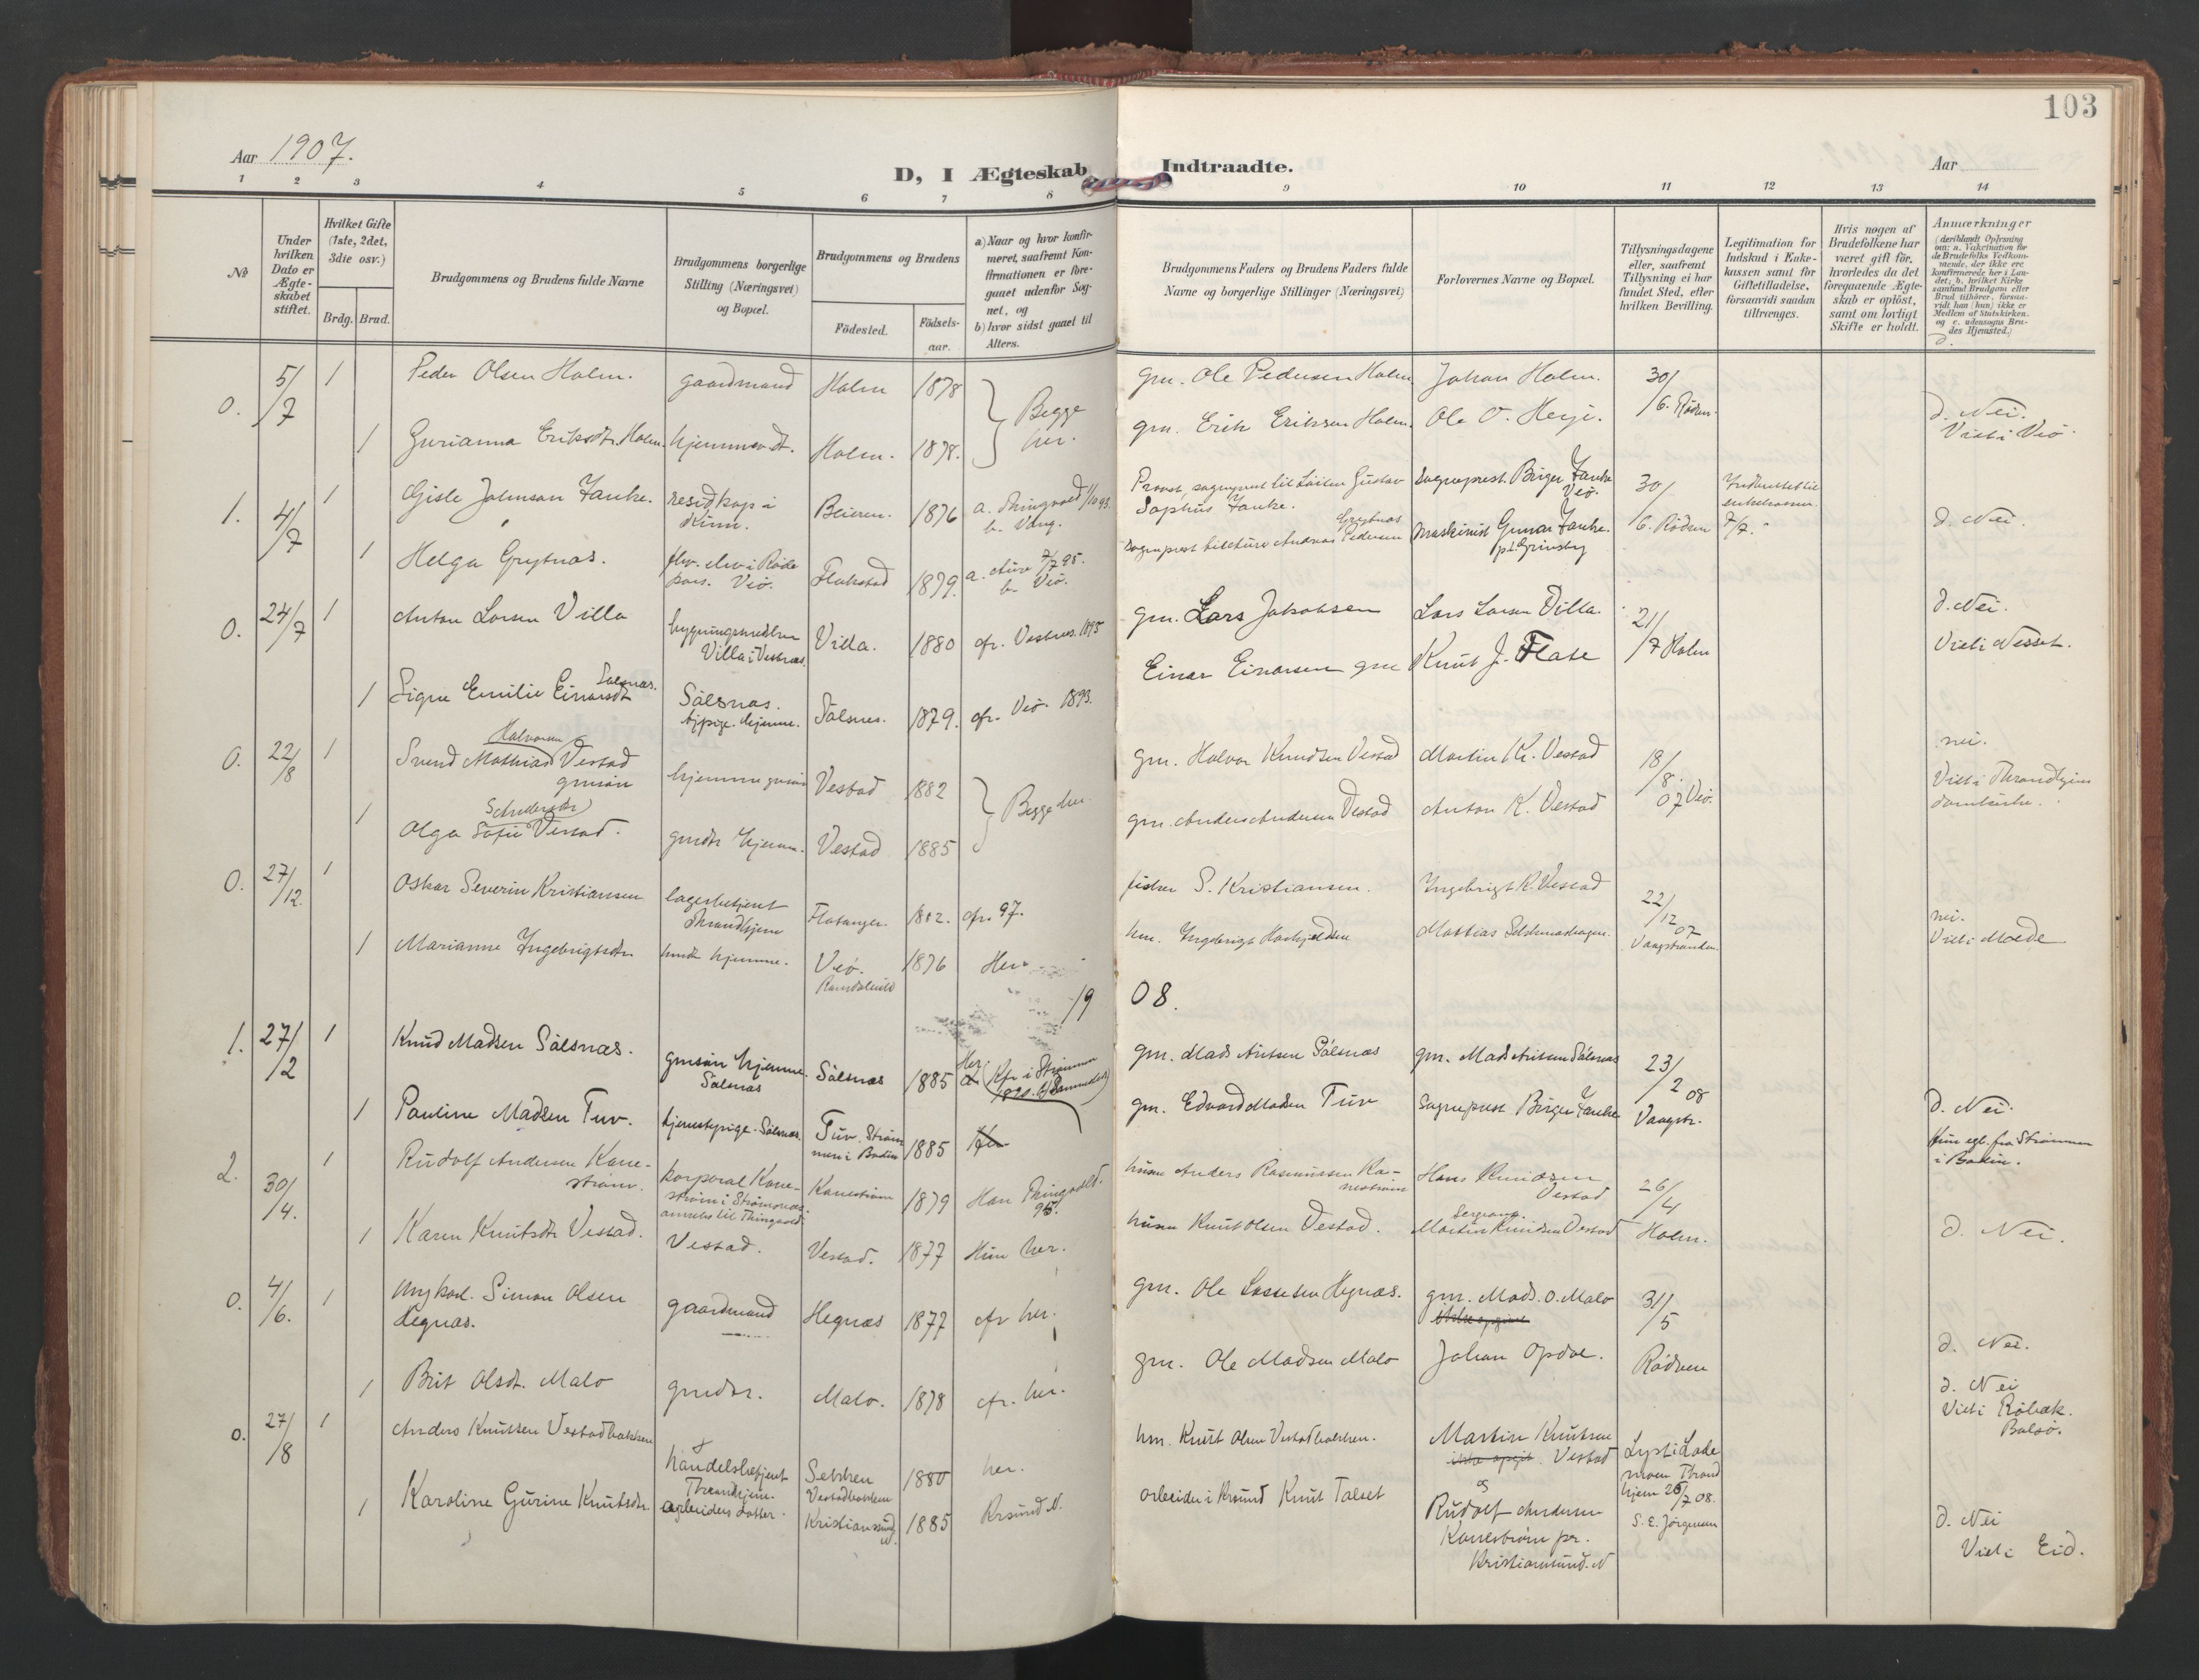 103
Aar 1907.
D, I Ægteskab Indtraadte.
Aar
1 2 3 4 5 6 7 8 9 10 11 12 13 14
No
Under hvilken Dato er Ægteskabet stiftet.
Hvilket Gifte (1ste, 2det, 3die osv.)
Brdg. Brud.
Brudgommens og Brudens fulde Navne
Brudgommens borgerlige Stilling (Næringsvei) og Bopæl.
Brudgommens og Brudens
Fødested.
Fødselsaar.
a) Naar og hvor konfirmeret, saafremt Konfirmationen er foregaaet udenfor Sognet, og
b) hvor sidst gaaet til Alters.
Brudgommens Faders og Brudens Faders fulde Navne og borgerlige Stillinger (Næringsvei)
Forlovernes Navne og Bopæl.
Tillysningsdagene eller, saafremt Tillysning ei har fundet Sted, efter hvilken Bevilling.
Legitimation for Indskud i Enkekassen samt for Giftetilladelse, forsaavidt saadan tiltrænges.
Hvis nogen af Brudefolkene har været gift før, hvorledes da det foregaaende Ægteskab er opløst, samt om lovligt Skifte er holdt.
Anmærkninger
(deriblandt Oplysning om: a. Vakcination for de Brudefolks Vedkommende, der ikke ere konfirmerede her i Landet; b. hvilket Kirkesamfund Brudgom eller Brud tilhører, forsaavidt han (hun) ikke er Medlem af Statskirken. og c. udensogns Brudes Hjemsted.)
d.
0. 5/7 1 Peder Olsen Holm. gaardmand Holm 1878 Begge her. gm. Ole Pedersen Holm Johan Holm. 30/6. Rødven.
1 Gurianna Eriksdt. Holm. hjemmev. dt. Holm. 1878. gm. Erik Eriksen Holm. Ole O. Herje. d. Nei.
Viet i Veø.
1. 4/7 1 Gisle Johnson Zanke. resid kap i Kinn. Beieren. 1876 a. Thingvold 1/10 93. b. Vang. Provst, sogneprest til Løiten Gustav Sophus Zanke. Sogneprest Birger Zanke Veø. 30/6. Rødven 7/7.
1 Helga Grytnæs. Flakstad 1879. a. Aure 7/7 95. b. Veø. Sogneprest til Aure Andreas Pedersen Grytnæs Maskinist Gunnar Zanke. pt. Grimsby d. Nei.
0. 24/7 1 Anton Larsen Villa bygningssnedker Villa i Vestnes. Villa. 1880 cfr. Vestnes. 1895 gm. Lars Jakobsen Lars Larsen Villa. 21/7 Holm d. Nei.
Viet i Nesset.
1 Signe Emilie Einarsdt Sølsnæs. Sølsnæs. tjpige. hjemme. Sølsnes. 1879. cfr. Veø. 1893. Einar Einarsen gm Knut J. Flate
0. 22/8 1 Svend Mathias Halvorsen Vestad gmsøn hjemme gmsøn Vestad 1882 Begge her. gm. Halvor Knudsen Vestad Martin K. Vestad 18/8. 07 Veø. nei.
Viet i Throndhjem domkirke.
1 Olga Sofie Vestad. gmdtr hjem. Vestad 1885 gm. Anders Andersen Vestad Anton K. Vestad
0. 27/12. 1 Oskar Severin Kristiansen lagerbetjent Throndhjem Flatanger. 1882. cfr. 97. fisker S. Kristiansen. Ingebrigt K. Vestad 22/12 07 Vaagstranden nei.
Viet i Molde
1 Marianne Ingebrigtsdtr hmdt hjemme. Veø. Romsdalen 1876 Her hm. Ingebrigt Mattias
1908.
1. 27/2 1 Knud Madsen Sølsnæs. gmsøn hjemme. Sølsnæs Sølsnæs 1885 Her gm. Mads Antsen Sølsnæs gm. Mads Antsen Sølsnæs 23/2 08 Vaagstr.
1 Pauline Madsen Tuv. tjenestepige. Sølsnæs. Tuv. Strømmen i Bodin 1885 gm. Edvard Madsen Tuv Sogneprest Birger Zanke d. Nei.
Hun egl. fra Strømmen i Bodin.
2. 30/4. 1 Rudolf Andersen Kanestrøm. korporal Kanestrøm i Strømsnæs annex til Thingvold. Kanestrøm 1879 Han Thingvold. 95. husm Anders Rasmussen Kanestrøm Hans Knudsen Vestad 26/4 Holm.
1 Karen Knutsdt Vestad. Vestad. Vestad. 1877 Hun her. husm Knut Olsen Vestad. Sergeant Martin Knudsen Vestad d. Nei.
0. 4/6. 1 Ungkarl. Simon Olsen Hegnæs. gaardmand Hegnæs 1877 cfr her. gm. Ole Lassesen Hegnæs. gm. Mads. O. Malo 31/5 Rødven
1 Brit Olsdt. Malo gmdtr. Malo. 1878 cfr. her. gm. Ole Madsen Malo Johan Opdøl. d. Nei.
0. 27/8 1 Anders Knutsen Vestadbakken handelsbetjent Throndhjem. Sekken Vestadbakken 1880 her. hm. Knut Olsen Vestadbakken. Martin Knutsen Vestad og Lyst i Lademoen Throndhjem 26/7 08. S. E. Jørgensen d. Nei
Viet i Røbæk. Bolsø.
1 Karoline Gurine Knutsdtr. arbeiders datter. Kristiansund N. 1885 Krsund N. arbeider i Krsund Knut Talset Rudolf Andersen Kanestrøm pr. Kristiansund. N d. Nei
Viet i Eid.